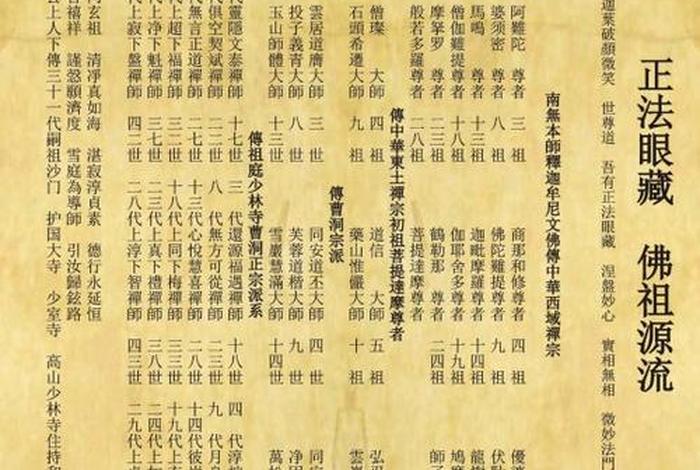 正法眼藏　佛祖源流
迦葉破顏微笑　世尊道　吾有正法眼藏　涅盤妙心　實相無相　微妙法門
南無本師釋迦牟尼文佛傳中華西域禪宗
阿難陀　尊者　三　祖　商那和修尊者　四　祖　優
婆須密　尊者　八　祖　佛陀難提尊者　九　祖　伏
馬鳴　尊者　十三祖　迦毗摩羅尊者　十四祖　龍
僧伽難提尊者　十八祖　伽耶舍多尊者　十九祖　鳩
摩拏罗　尊者　二三祖　鶴勒那　尊者　二四祖　師
般若多羅尊者　二八祖　菩提達摩尊者
傳中華東土禪宗初祖菩提達摩尊者
僧璨　大師　四　祖　道信　大師　五　祖　弘
石頭希遷大師　九　祖　藥山惟儼大師　十　祖　雲
傳曹洞宗派
雲居道膺大師　三　世　同安道丕大師　四　世　同安
投子義青大師　八　世　芙蓉道楷大師　九　世　净因
玉山師體大師　十三世　雪巖慧滿大師　十四世　萬松
傳祖庭少林寺曹洞正宗派系
代靈隱文泰禪師　十七世　三　代還源福遇禪師　十八世　四　代淳
代俱空契斌禪師　二二世　八　代無方可從禪師　二三世　九　代月舟
代無言正道禪師　二七世　十三代心悅慧喜禪師　二八世　十四代彼岸
代上超下福禪師　三二世　十八代上同下梅禪師　三三世　十九代上
代上净下魁禪師　三七世　二三代上真下禮禪師　三八世　二四代上
代上寂下盤禪師　四二世　二八代上淳下智禪師　四三世　二九代上
何玄祖　清凈真如海　湛寂淳貞素　德行永延恒
普禧祥　謹慤願濟度　雪庭為導師　引汝歸鉉路
上人下傳三十一代嗣祖沙门　护国大寺　少室寺　高山少林寺住持